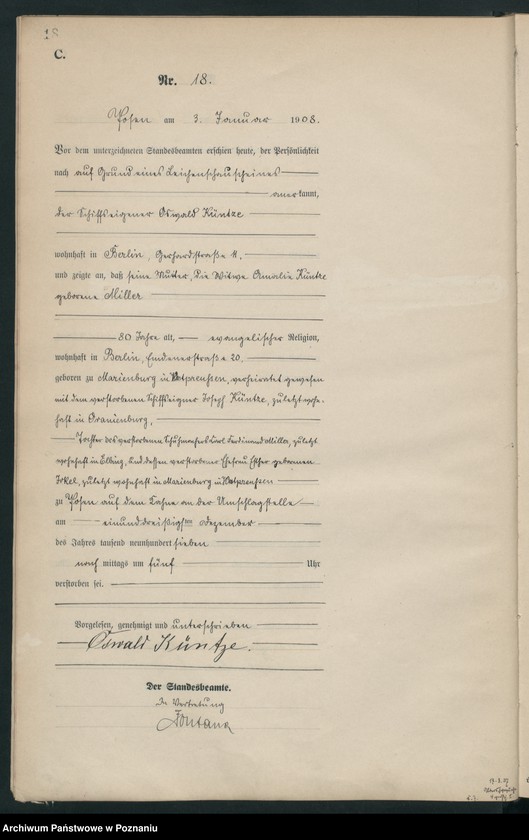 18
C.
Nr. 18.
Posen am 3. Januar 1908.
Vor dem unterzeichneten Standesbeamten erschien heute, der Persönlichkeit
nach auf Grund eines Leichenschauscheines
anerkannt,
der Schiffseigener Oswald Küntze
wohnhaft in Berlin, Gerhardstraße
und zeigte an, daß seine Mutter, die Witwe Amalie Küntze
geborene Miller
80 Jahre alt, evangelischer Religion,
wohnhaft in Berlin, Emdenerstraße 20,
geboren zu Marienburg in Westpreußen, verheiratet gewesen
mit dem verstorbenen Schiffseigner Joseph Küntze, zuletzt wohn-
haft in Oranienburg,
Tochter des verstorbenen Carl Ferdinand Miller, zuletzt
wohnhaft in Elbing, und dessen verstorbener Ehefrau Esther geborenen
zuletzt wohnhaft in Marienburg in Westpreußen
zu Posen auf dem Kahne an der Umschlagstelle
am einunddreißigsten Dezember
des Jahres tausend neunhundert sieben
nach mittags um fünf Uhr
verstorben sei.
Vorgelesen, genehmigt und unterschrieben
Oswald Küntze.
Der Standesbeamte.
In Vertretung
Fontana
Archiwum Państwowe w Poznaniu